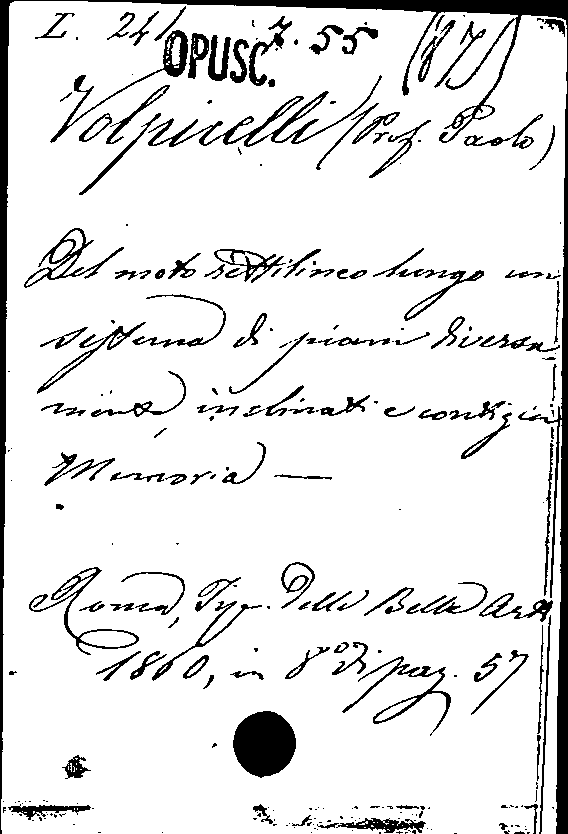 L. 241 7. 55 (87)
OPUSC.
Volpicelli (Prof. Paolo)
Del moto rettilineo lungo un
sistema di piani diversa-
mente inclinati e contigui
Memoria —
Roma, Typ. delle Belle Arti
1860, in 8º di pag. 57